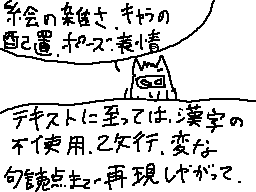 絵の雑さ、キャラの
配置、ポーズ、表情
テキストに至っては、漢字の
不使用、改行、変な
句読点まで再現しやがって.